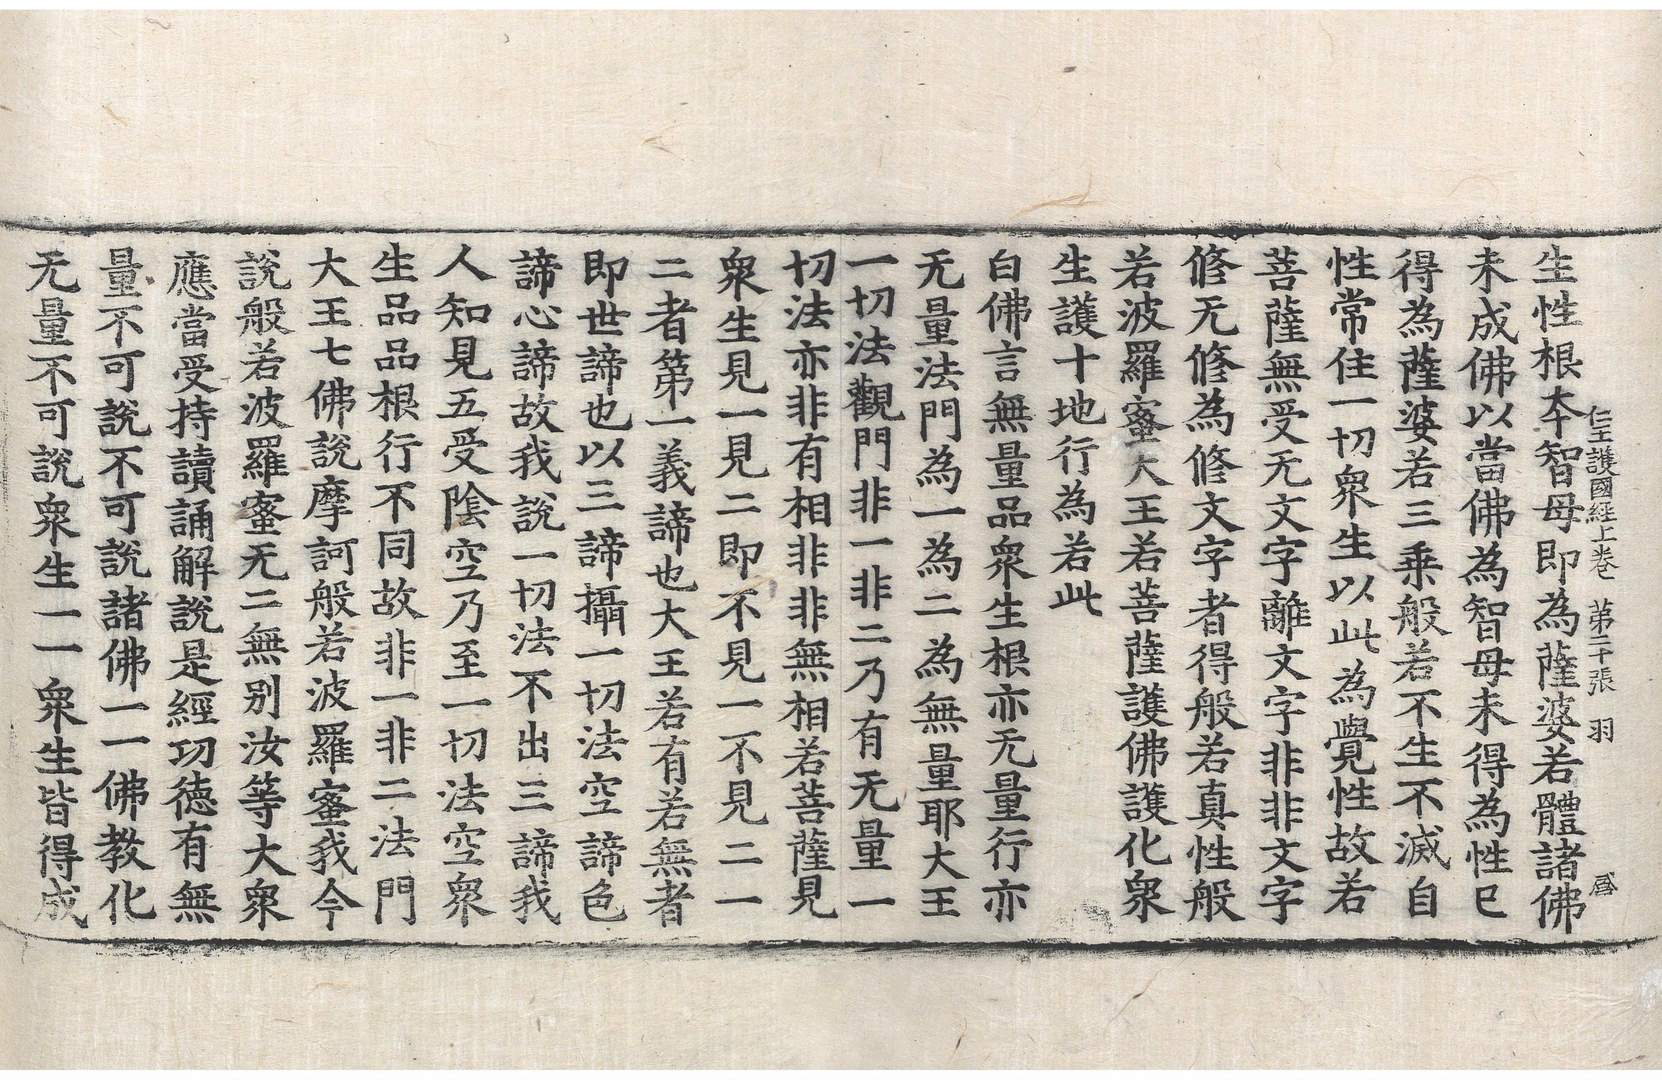 仁王護國經上卷 第二十張 羽
生性根本智母即為薩婆若體諸佛
未成佛以當佛為智母未得為性已
得為薩婆若三乘般若不生不滅自
性常住一切衆生以此為覺性故若
菩薩無受无文字離文字非非文字
修无修為修文字者得般若真性般
若波羅蜜大王若菩薩護佛護化衆
生護十地行為若此
白佛言無量品衆生根亦无量行亦
无量法門為一為二為無量耶大王
一切法觀門非一非二乃有无量一
切法亦非有相非非無相若菩薩見
衆生見一見二即不見一不見二一
二者第一義諦也大王若有若無者
即世諦也以三諦攝一切法空諦色
諦心諦故我說一切法不出三諦我
人知見五受陰空乃至一切法空衆
生品品根行不同故非一非二法門
大王七佛說摩訶般若波羅蜜我今
說般若波羅蜜无二無别汝等大衆
應當受持讀誦解說是經功德有無
量不可說不可說諸佛一一佛教化
无量不可說衆生一一衆生皆得成